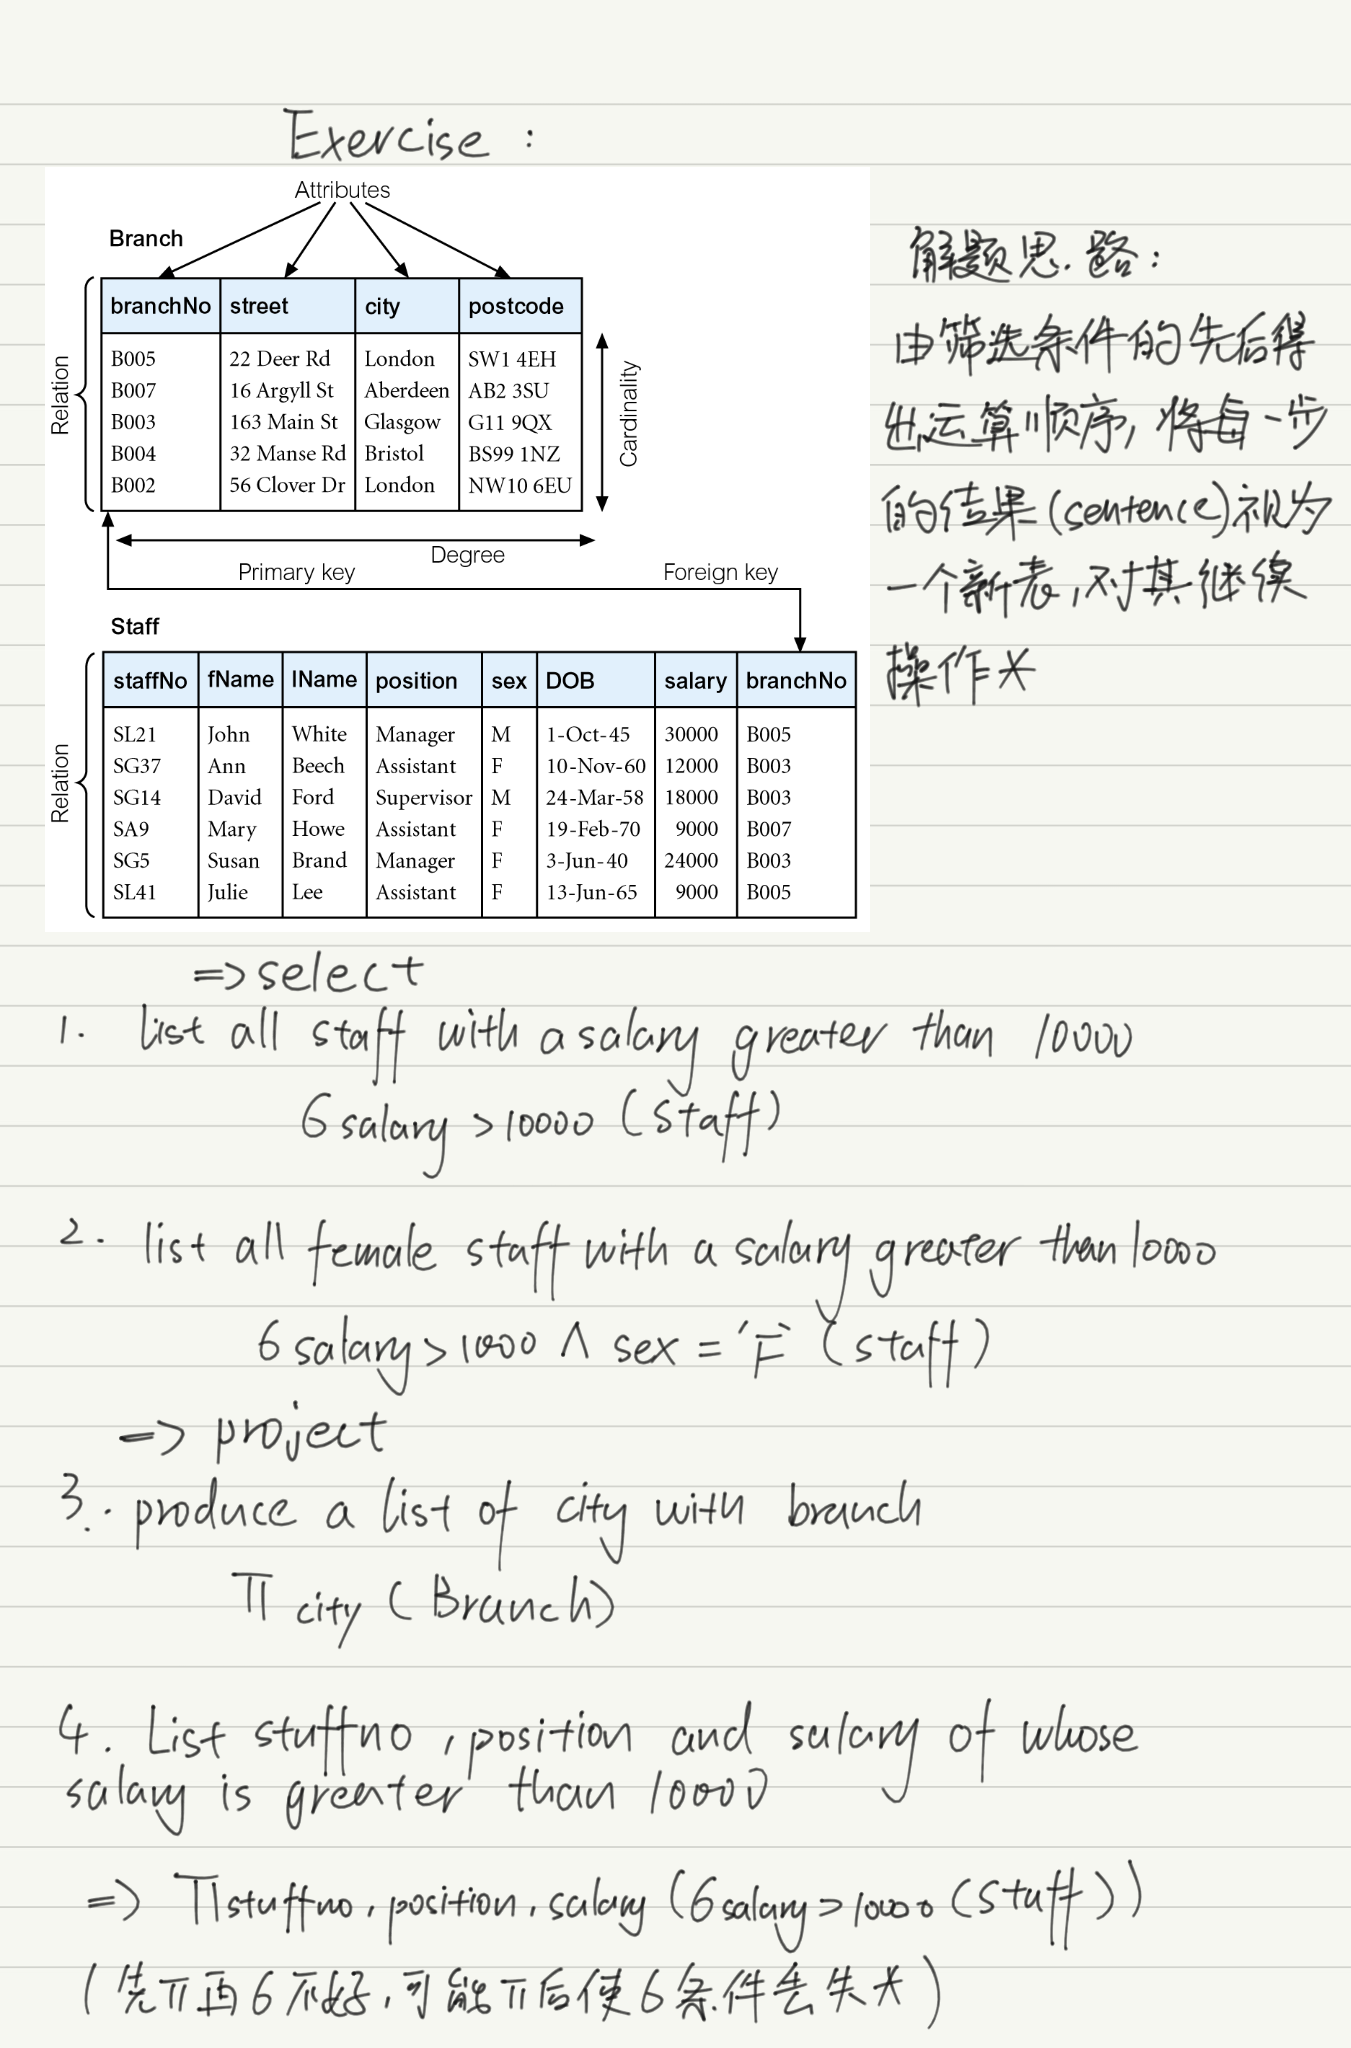 Exercise :
Attributes
Branch
branchNo street city postcode
B005 22 Deer Rd London SW1 4EH
B007 16 Argyll St Aberdeen AB2 3SU
B003 163 Main St Glasgow G11 9QX
B004 32 Manse Rd Bristol BS99 1NZ
B002 56 Clover Dr London NW10 6EU
Relation
Cardinality
Degree
Primary key
Foreign key
Staff
staffNo fName lName position sex DOB salary branchNo
SL21 John White Manager M 1-Oct-45 30000 B005
SG37 Ann Beech Assistant F 10-Nov-60 12000 B003
SG14 David Ford Supervisor M 24-Mar-58 18000 B003
SA9 Mary Howe Assistant F 19-Feb-70 9000 B007
SG5 Susan Brand Manager F 3-Jun-40 24000 B003
SL41 Julie Lee Assistant F 13-Jun-65 9000 B005
Relation
解题思路:
由筛选条件的先后得
出运算顺序,将每一步
的结果(sentence)视为
一个新表,对其继续
操作*
=> select
1. list all staff with a salary greater than 10000
6 salary > 10000 (staff)
2. list all female staff with a salary greater than 10000
6 salary > 1000 ∧ sex = 'F' (staff)
=> project
3. produce a list of city with branch
π city (Branch)
4. List stuffno, position and salary of whose
salary is greater than 10000
=> π stuffno, position, salary (6 salary > 10000 (Staff))
(先π再6不好,可能π后使6条件丢失*)